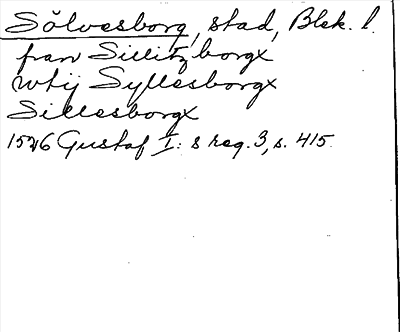 Sölvesborg, stad, Blek. l.
fran Sillitzborgx
wtij Syllesborgx
Sillesborgx
1526 Gustaf I: s reg. 3, s. 415.